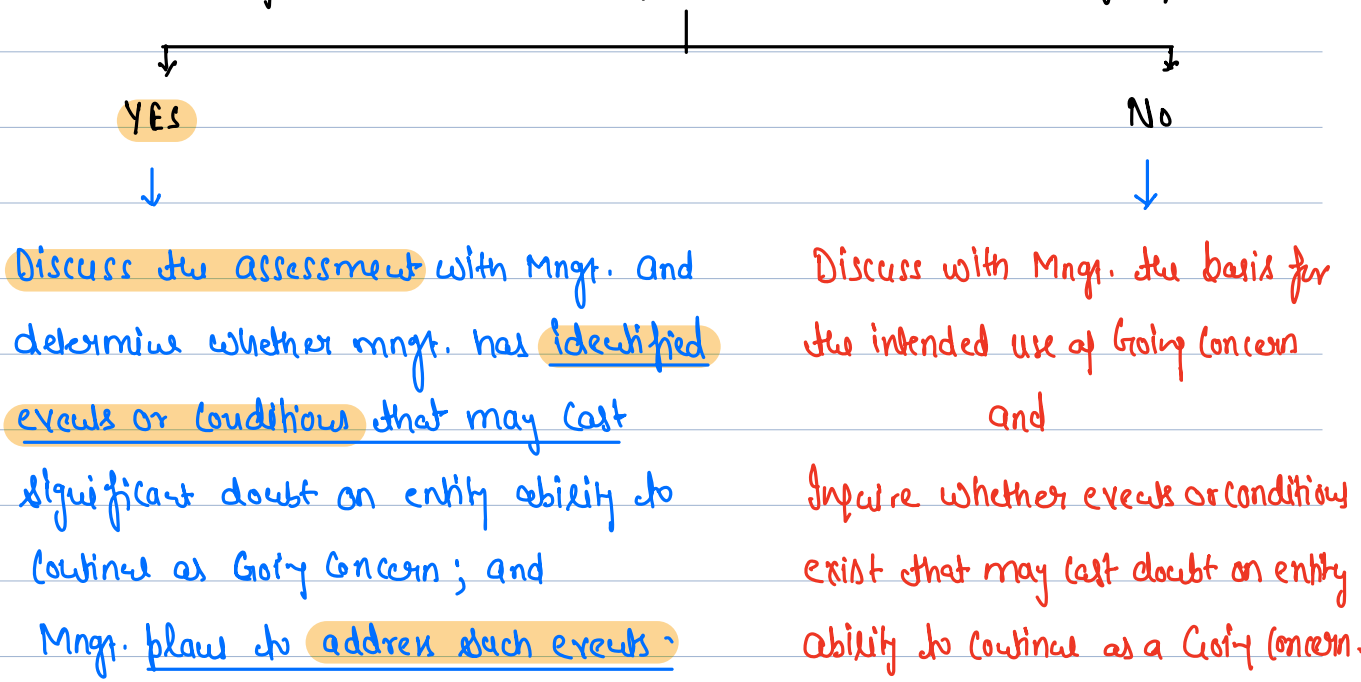 YES
No
Discuss the assessment with Mngt. and
determine whether mngt. has identified
events or conditions that may cast
significant doubt on entity ability to
continue as Going Concern; and
Mngt. plans to address such events.
Discuss with Mngt. the basis for
the intended use of Going Concern
and
Inquire whether events or conditions
exist that may cast doubt on entity
ability to continue as a Going Concern.